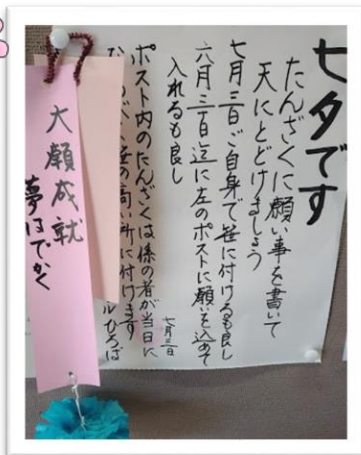 七夕です
たんざくに願い事を書いて
天にとどけましょう
七月三日ご自身で笹に付けるも良し
六月三十日迄に左のポストに願いを込めて
入れるも良し
ポスト内のたんざくは係の者が当日に
笹の高い所に付けます
七月三日
ルひろば
大願成就
夢はでかく